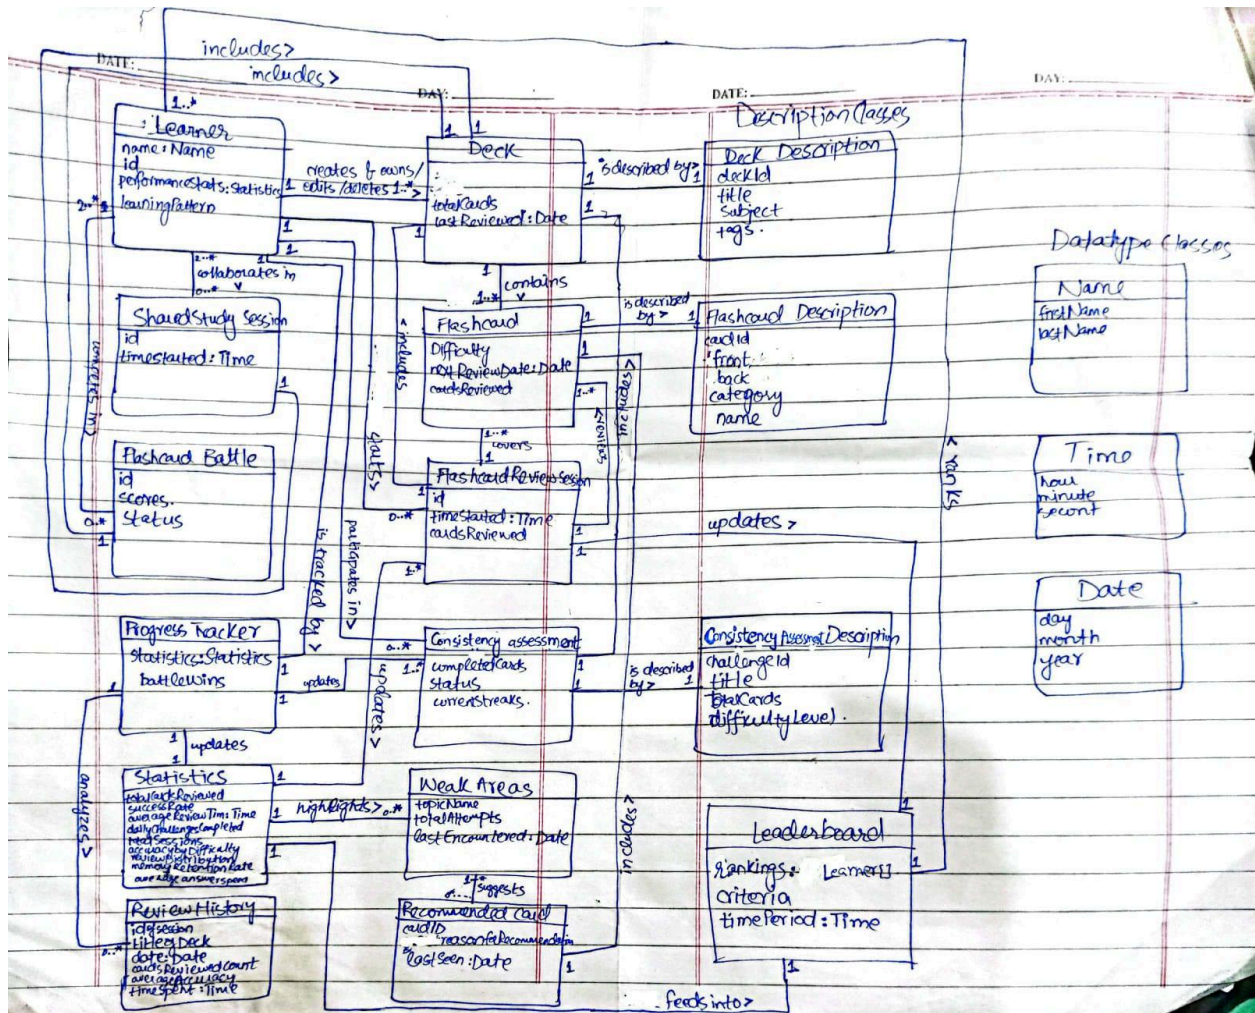 includes>
includes>
DATE:
DAY:
DATE:
DAY:
1..*
1
1
Learner
name: Name
id
performanceStats: Statistics
learningPattern
creates & owns/
edits/deletes
1
1..*
Deck
totalCards
lastReviewed: Date
is described by>
1
1
Description Classes
Deck Description
deckId
title
subject
tags.
Datatype Classes
Name
firstName
lastName
Time
hour
minute
second
Date
day
month
year
2..*
1
1
1
1
1
1
2..*
collaborates in
0..*
v
1
contains
1..*
v
SharedStudy Session
id
timestarted: Time
1
Flashcard
Difficulty
nextReviewDate: Date
cardsReviewed
1
1
1..*
is described
by>
1
Flashcard Description
cardId
front
back
category
name
competes in>
<includes
starts>
<reviews
includes>
<ranks
1..*
covers
1
Flashcard Battle
id
scores.
Status
0..*
1
FlashcardReviewSession
id
timestarted: Time
cardsReviewed
1
0..*
1
1
1..*
updates >
is tracked by >
participates in>
updates >
Progress Tracker
statistics: Statistics
battleWins
1
1
1
updates
0..*
1..
Consistency assessment
completedCards
status
currentStreaks.
1
1
is described
by>
1
Consistency Assessment Description
challengeId
title
totalCards
difficultyLevel.
1
updates
1
analyzes >
Statistics
totalCardsReviewed
successRate
averageReviewTim: Time
dailyChallengesCompleted
totalSessions
accuracybyDifficulty
reviewDistribution
memoryRetentionRate
averageanswerspeed
1
1
1
highlights>
0..*
Weak Areas
topicName
totalAttempts
lastEncountered: Date
1
suggests
includes>
1
Leaderboard
rankings: Learner[]
criteria
timePeriod: Time
1
1
ReviewHistory
idofsession
titleofDeck
date: Date
cardsReviewedCount
averageAccuracy
timespent: Time
0..*
Recommended Card
cardID
reasonforRecommendation
lastSeen: Date
1
feeds into>